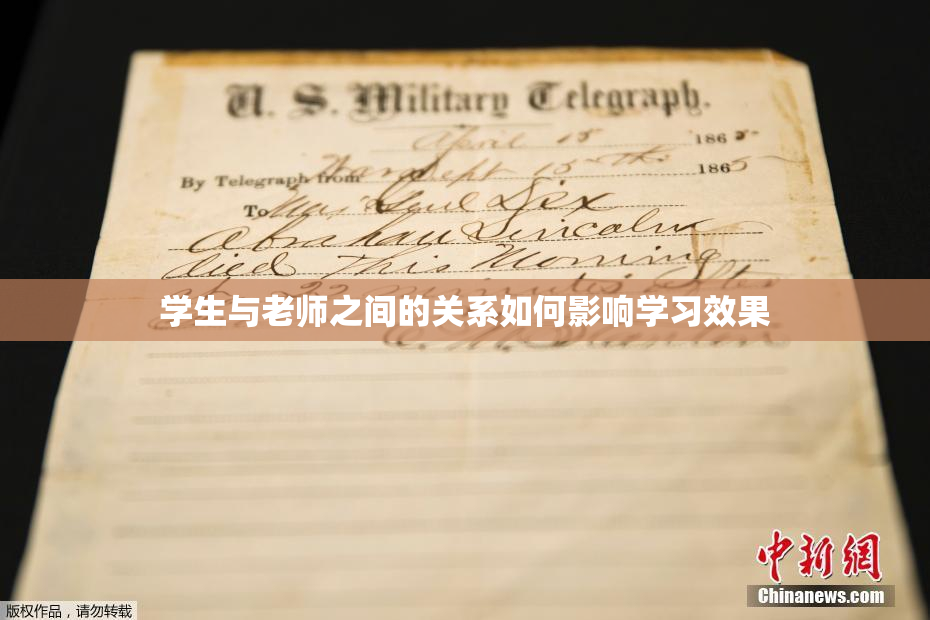 U. S. Military Telegraph.
April 15 1865
By Telegraph from War Dept 15th 1865
To Maj Genl Dix
Abraham Lincoln
died This Morning
at 22 minutes after
学生与老师之间的关系如何影响学习效果
Stanton
中新網
Chinanews.com
版权作品，请勿转载